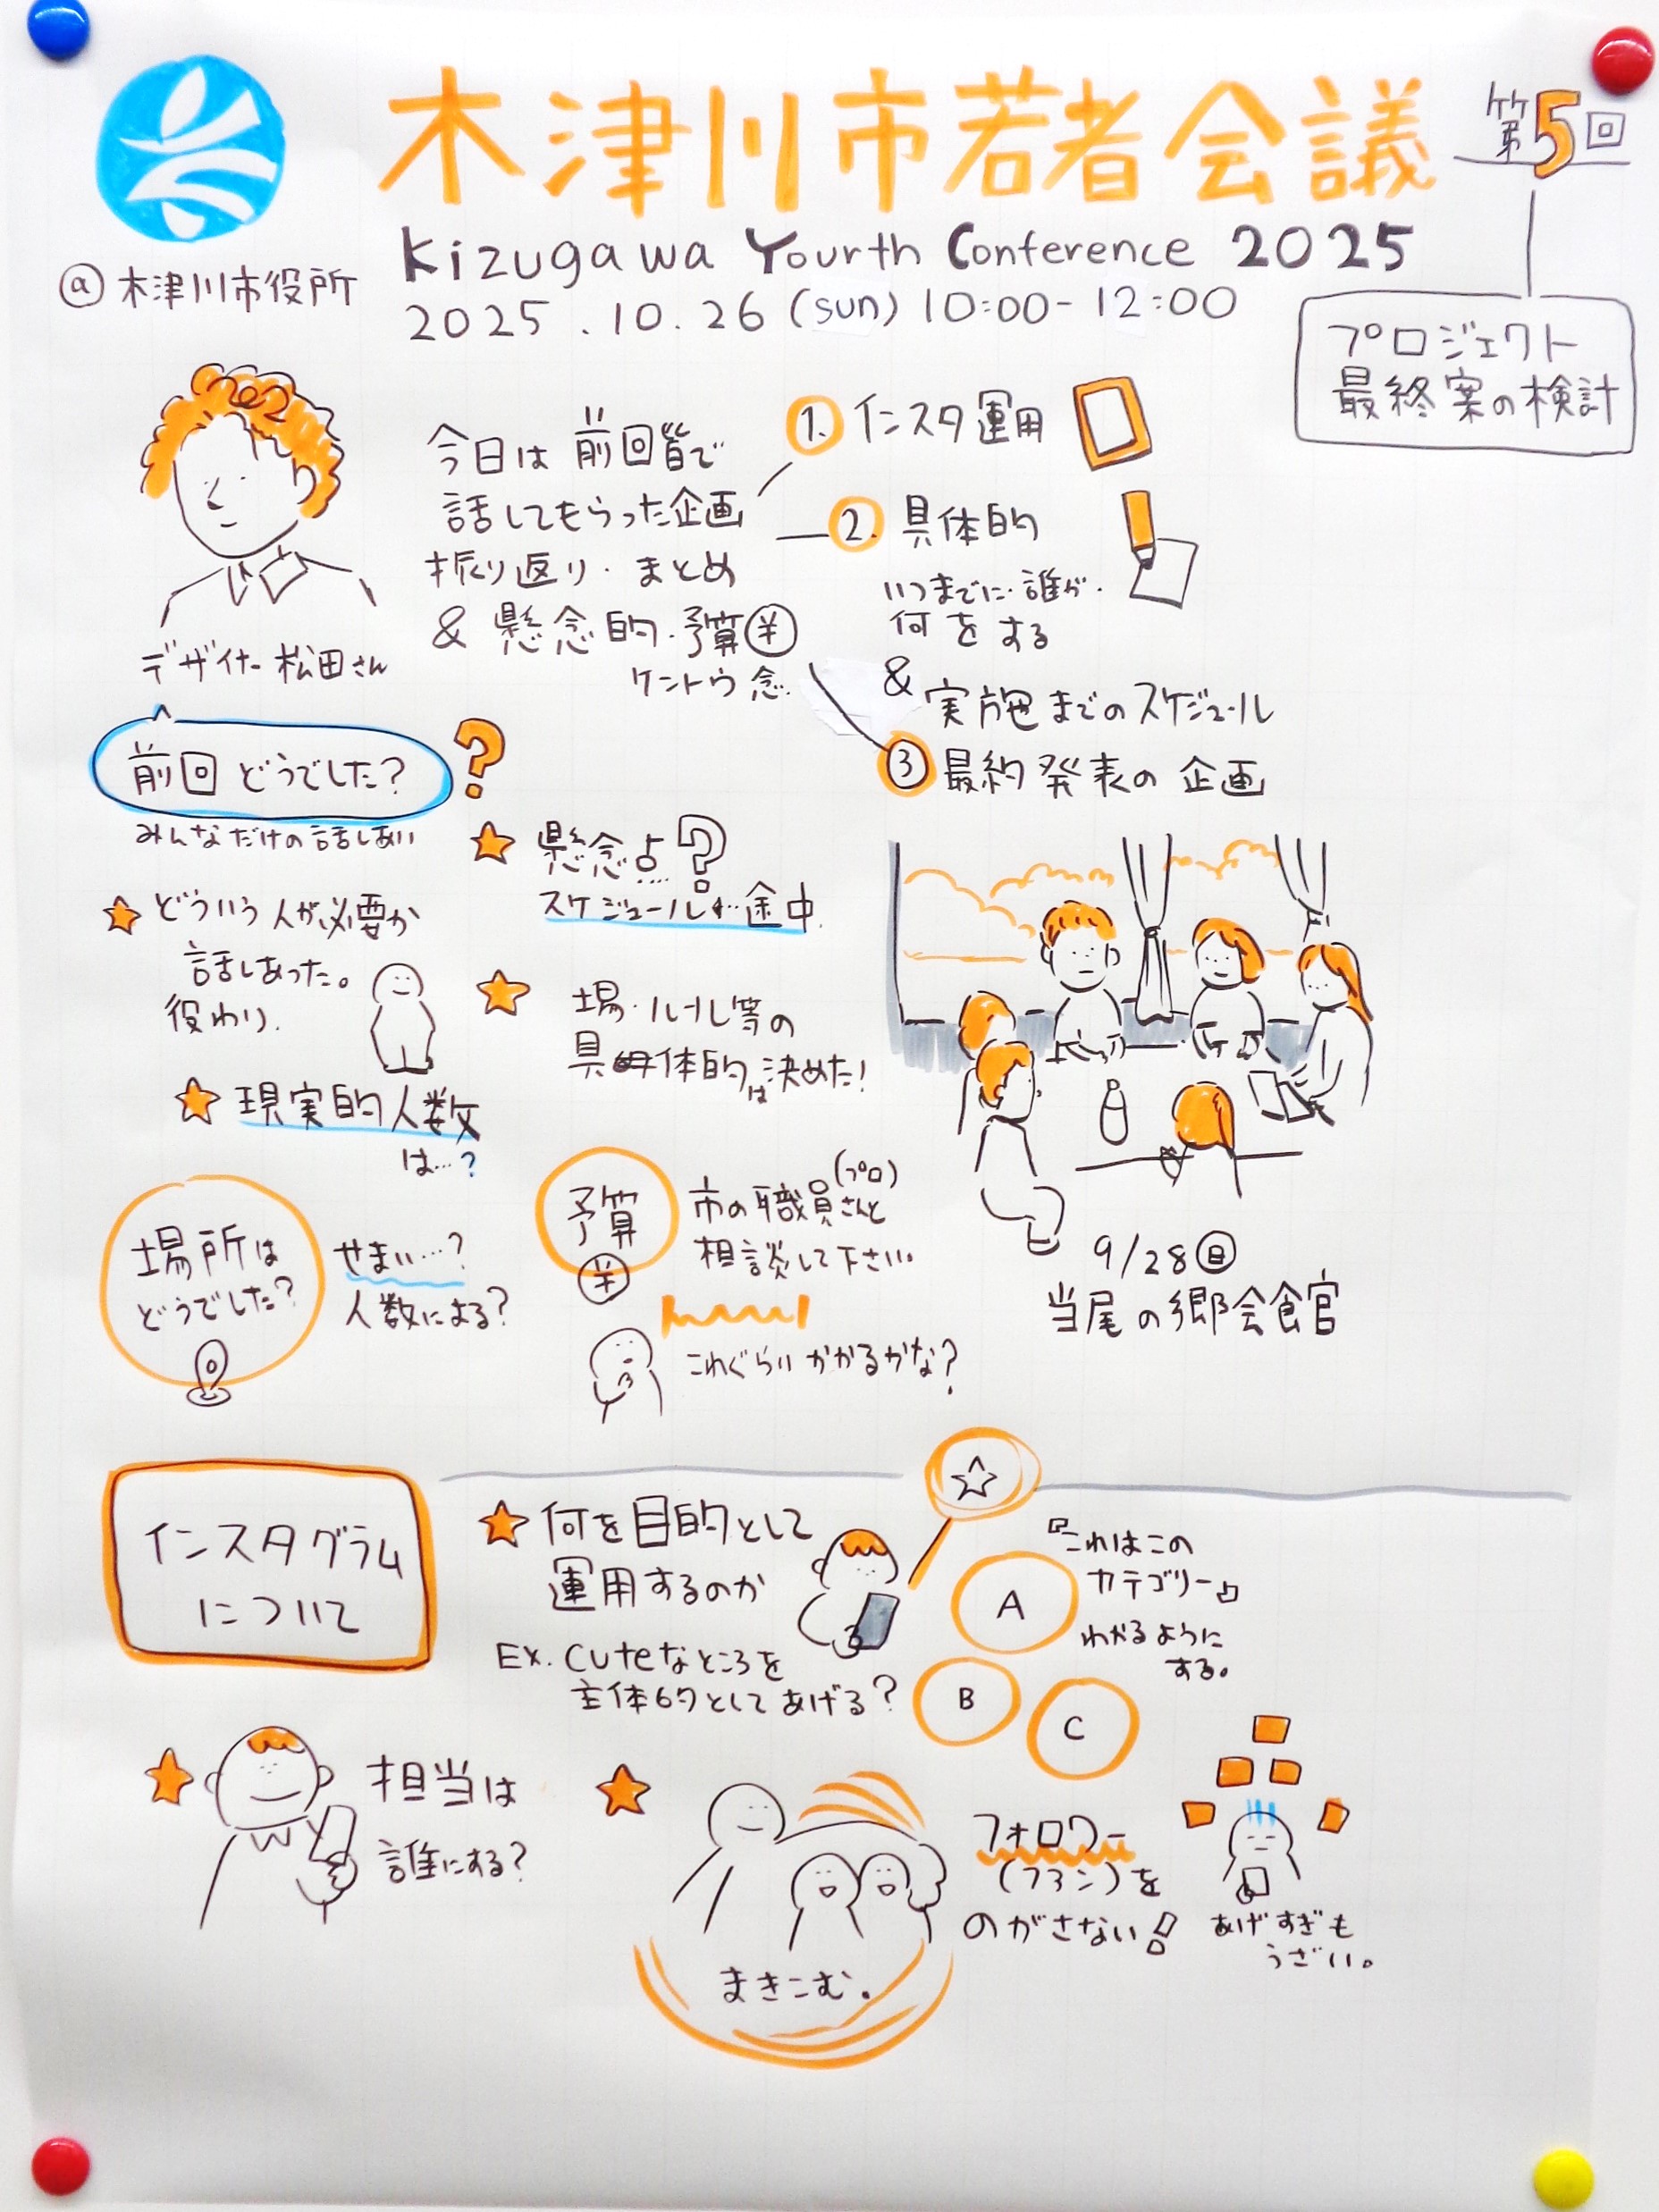 木津川市若者会議
第5回
Kizugawa Yourth Conference 2025
@木津川市役所
2025.10.26(sun)10:00-12:00
プロジェクト
最終案の検討
今日は前回皆で
話してもらった企画
振り返り・まとめ
&懸念的・予算¥
ケントウ念
デザイナー松田さん
1.インスタ運用
2.具体的
いつまでに・誰が・
何をする
&
実施までのスケジュール
3最約発表の企画
前回どうでした?
?
みんなだけの話しあい
どういう人が必要か
話しあった。
役わり.
現実的人数
は…?
懸念点?
スケジュール←…途中.
場・ルール等の
具体的は決めた!
場所は
どうでした?
せまい…?
人数による?
予算
¥
市の職員(プロ)さんと
相談して下さい。
これぐらいかかるかな?
9/28㊐
当尾の郷会食官
インスタグラム
について
何を目的として
運用するのか
Ex.Cuteなところを
主体的としてあげる?
A
B
C
『これはこの
カテゴリー』
わかるように
する。
担当は
誰にする?
まきこむ。
フォロワー
(ファン)を
のがさない!
あげすぎも
うざい。